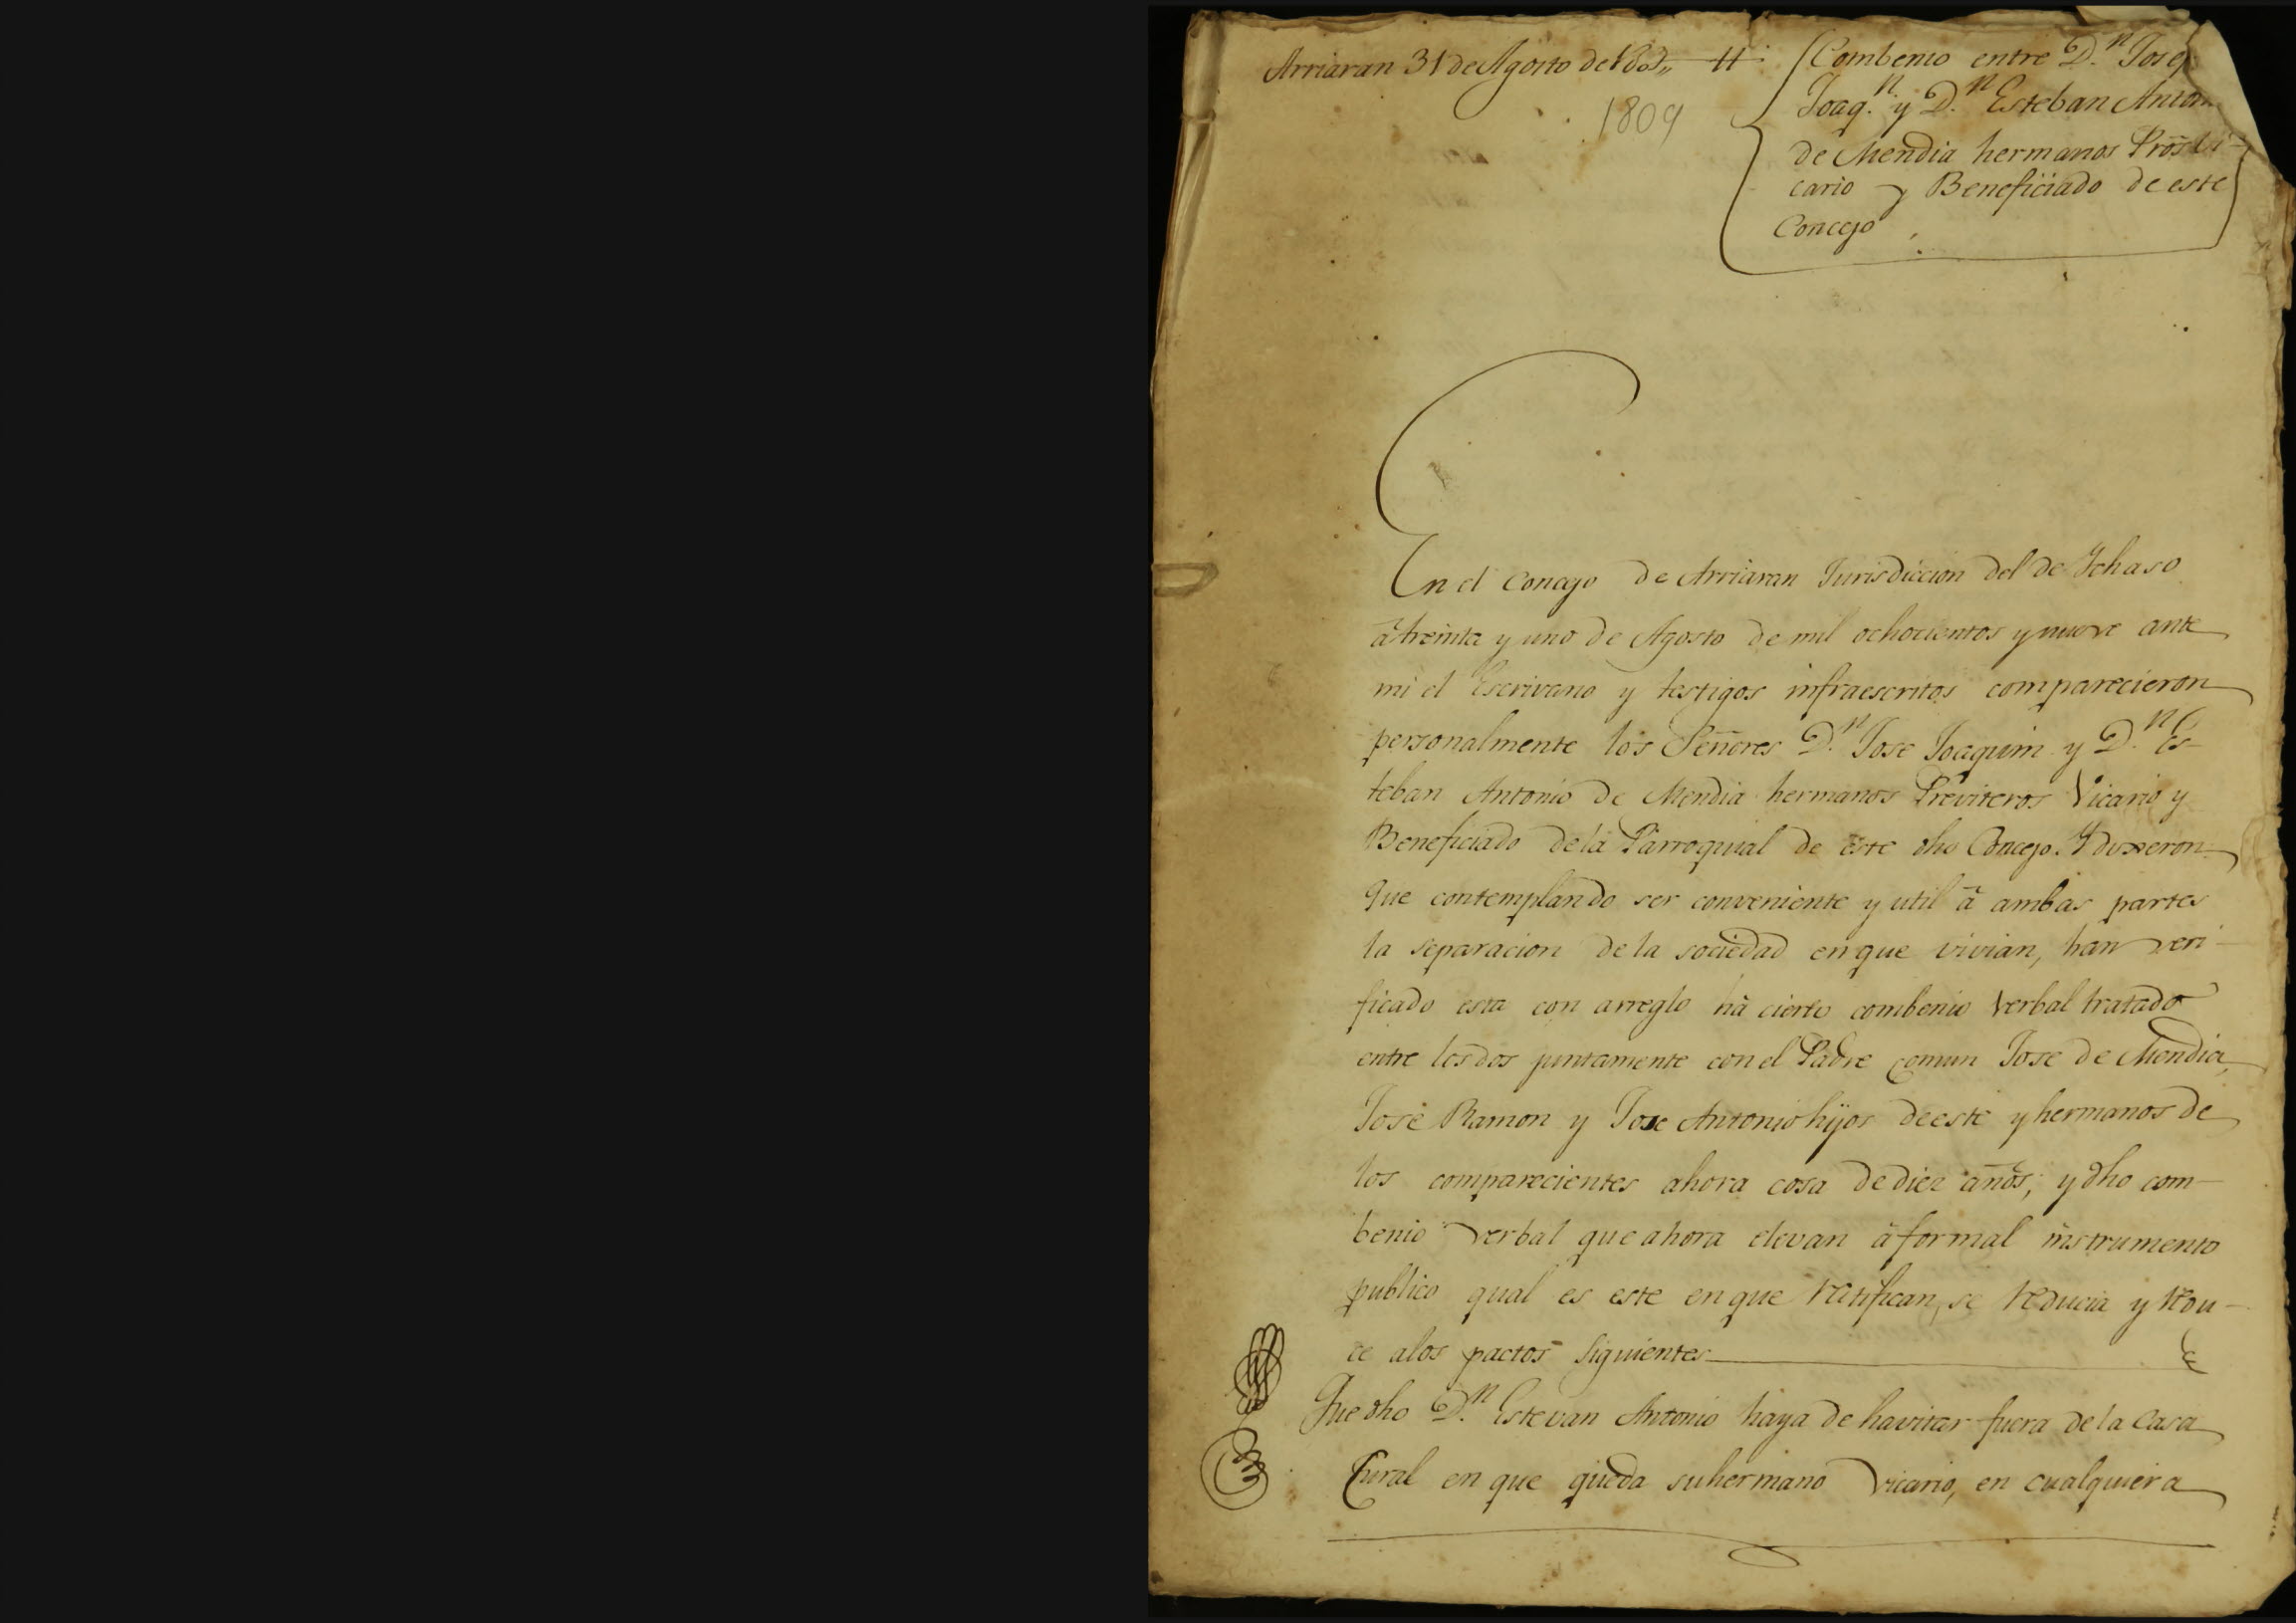 Arriaran 31 de Agosto de 1809,,
1809
Combenio entre D.n Josef
Joaq.n y D.n Esteban Anton
de Mendia hermanos Prõs Vi-
cario y Beneficiado de este
Concejo
En el Concejo de Arriaran Jurisdiccion del de Ychaso
â treinta y uno de Agosto de mil ochocientos y nueve ante
mi el Escrivano y testigos infraescritos comparecieron
personalmente los Señores D.n Jose Joaquin y D.n Es-
teban Antonio de Mendia hermanos Previteros Vicario y
Beneficiado de la Parroquial de este dho Concejo. Y duxeron
Que contemplando ser conveniente y util â ambas partes
la separacion de la sociedad en que vivian, han veri-
ficado esta con arreglo â cierto combenio verbal tratado
entre los dos juntamente con el Padre comun Jose de Mendia,
José Ramon y Jose Antonio hijos de este y hermanos de
los comparecientes ahora cosa de diez años, y dho com-
benio verbal que ahora elevan à formal instrumento
publico qual es este en que ratifican, se reducia y redu-
ce alos pactos siguientes
Que dho D.n Estevan Antonio haya de havitar fuera de la Casa
Cural en que queda su hermano Vicario, en cualquiera